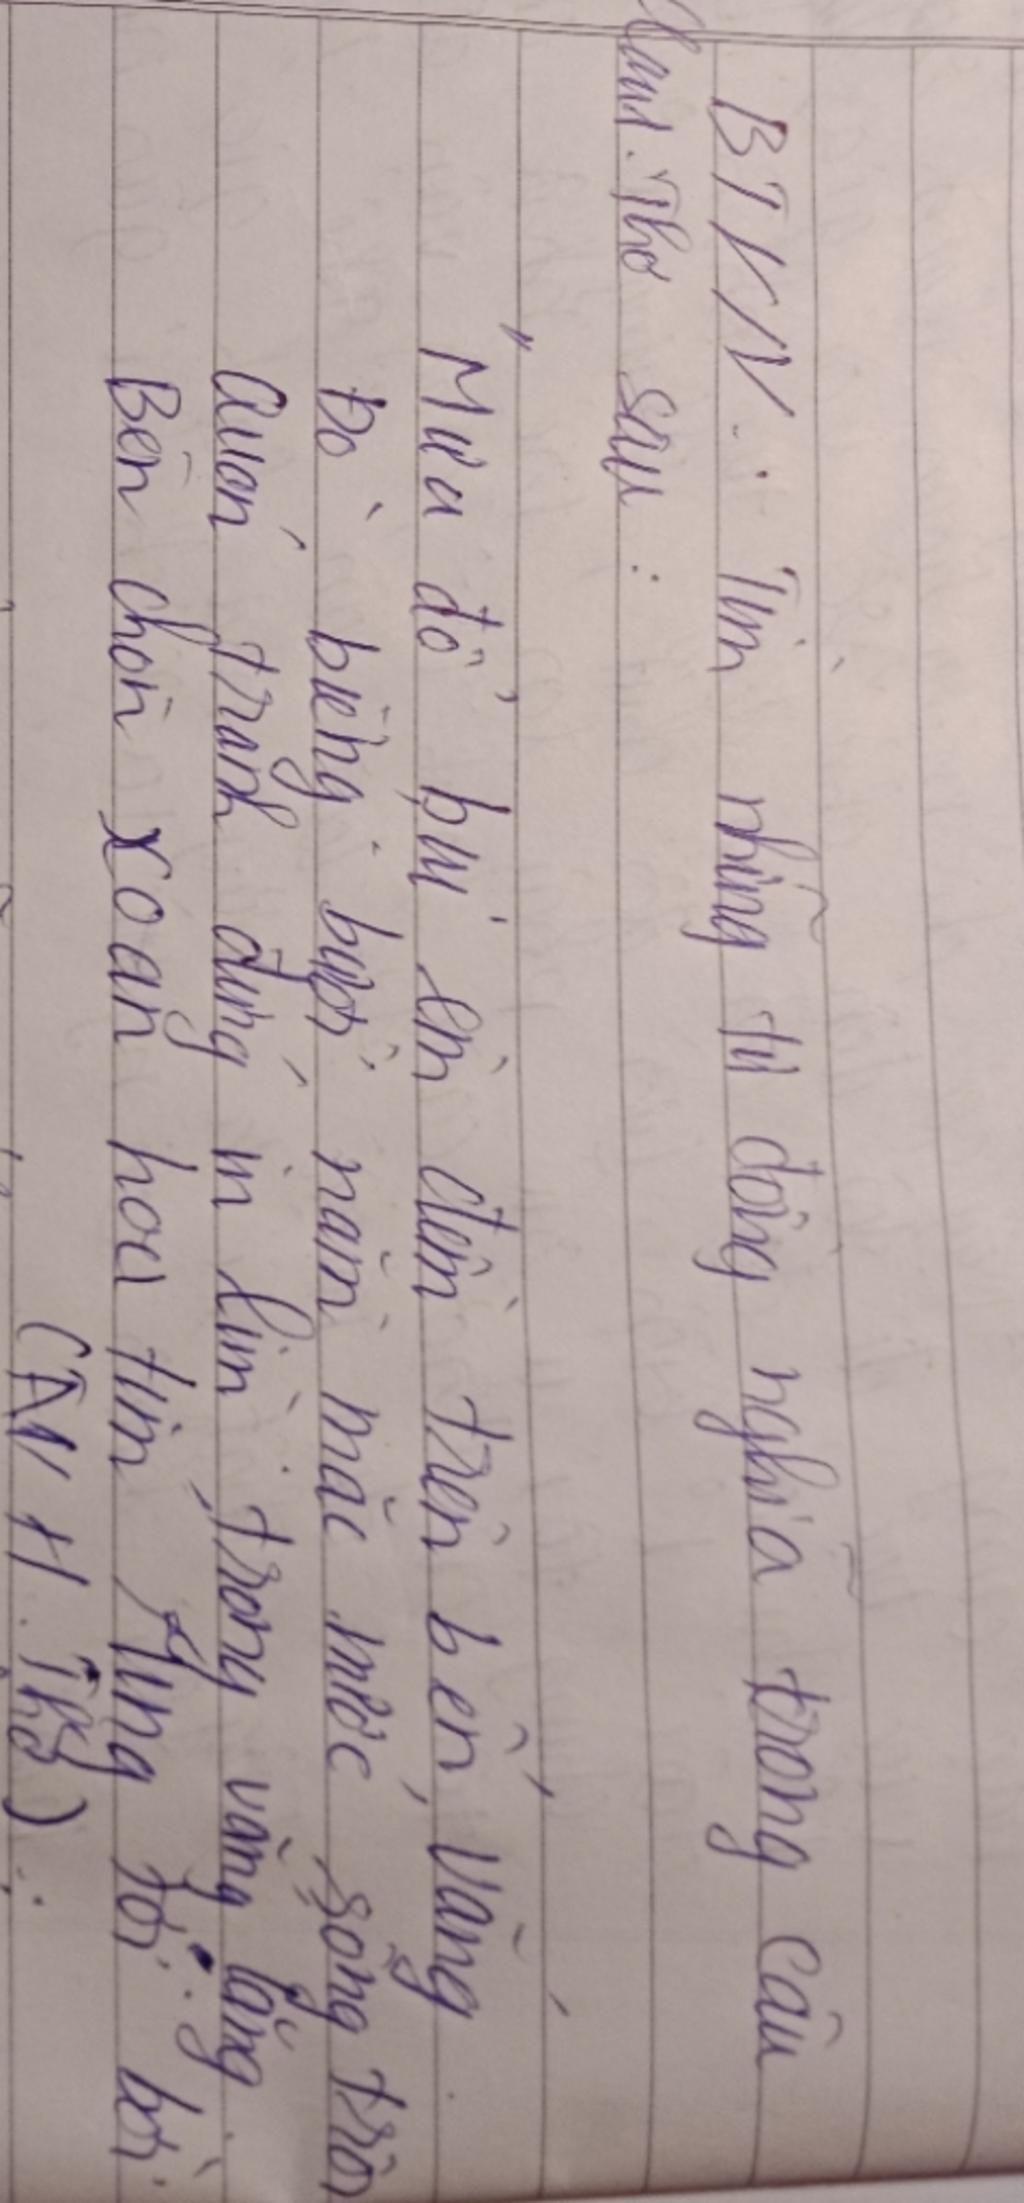 BTVN: Tìm những từ đồng nghĩa trong câu
Thơ sau:
"Mưa đổ bụi êm đềm trên bến vắng,
Đò biếng lười nằm mặc nước sông trôi
Quán tranh đứng im lìm trong vắng lặng
Bên chòm xoan hoa tím rụng tơi bời
(A N H. Thơ).